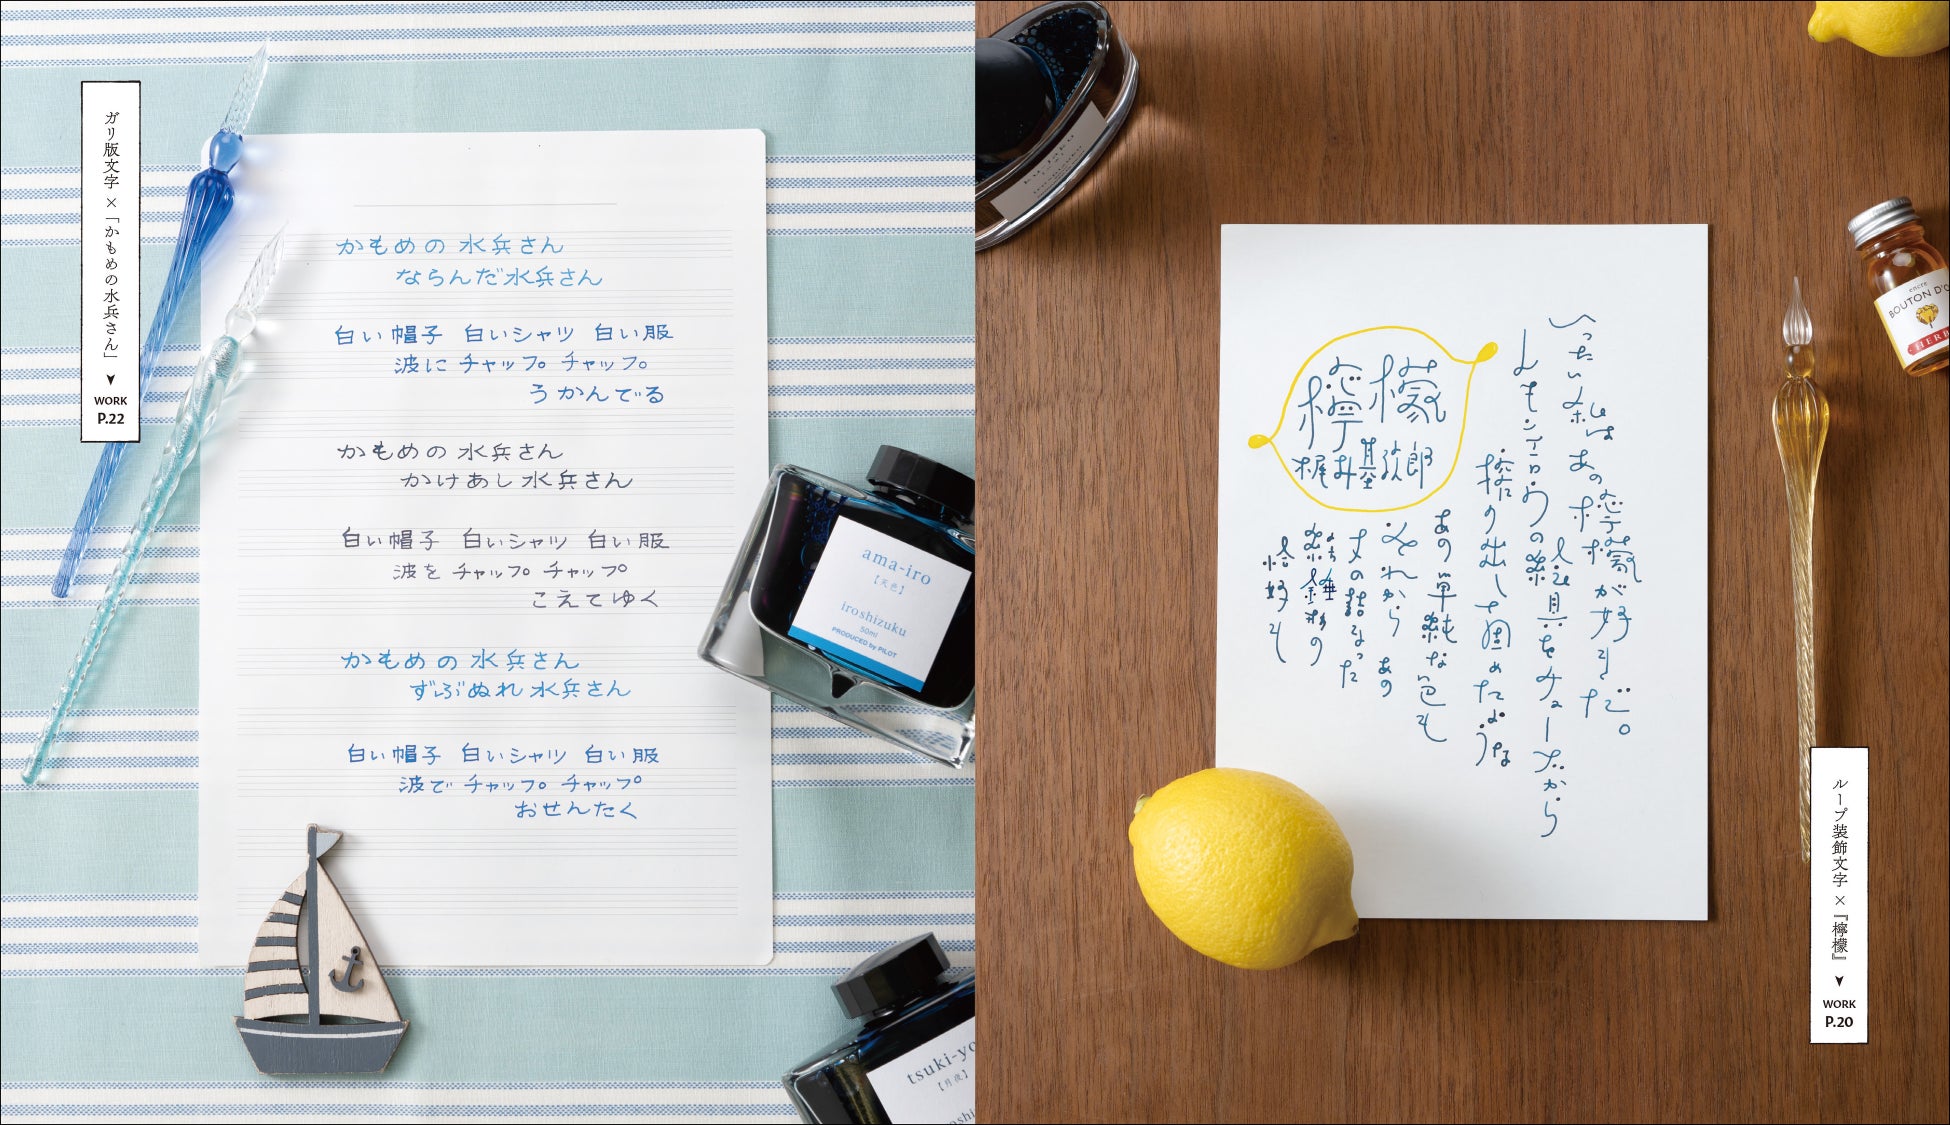 檸檬
梶井基次郎
いったい私はあの檸檬が好きだ。
レモンイエロウの絵具をチューブから
搾り出して固めたような
あの単純な色も
それから あの
丈の詰まった
紡錘形の
恰好も
encre
BOUTON D'O
HERB
ループ装飾文字×『檸檬』
WORK
P.20
ガリ版文字×「かもめの水兵さん」
WORK
P.22
かもめの水兵さん
ならんだ水兵さん
白い帽子 白いシャツ 白い服
波に チャップ チャップ
うかんでる
かもめの水兵さん
かけあし水兵さん
白い帽子 白いシャツ 白い服
波を チャップ チャップ
こえてゆく
かもめの水兵さん
ずぶぬれ水兵さん
白い帽子 白いシャツ 白い服
波で チャップ チャップ
おせんたく
ama-iro
【天色】
iroshizuku
50ml
PRODUCED by PILOT
tsuki-yo
【月夜】
iroshi